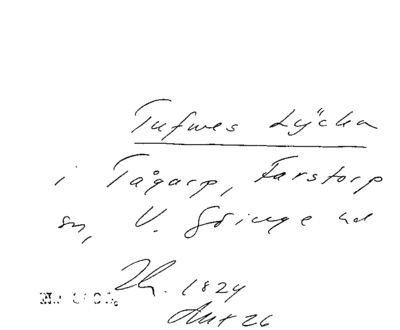 Tufwes Lÿcka
i Tågarp, Farstorp
sn, V. Göinge hd
Jb. 1824
Ant 26